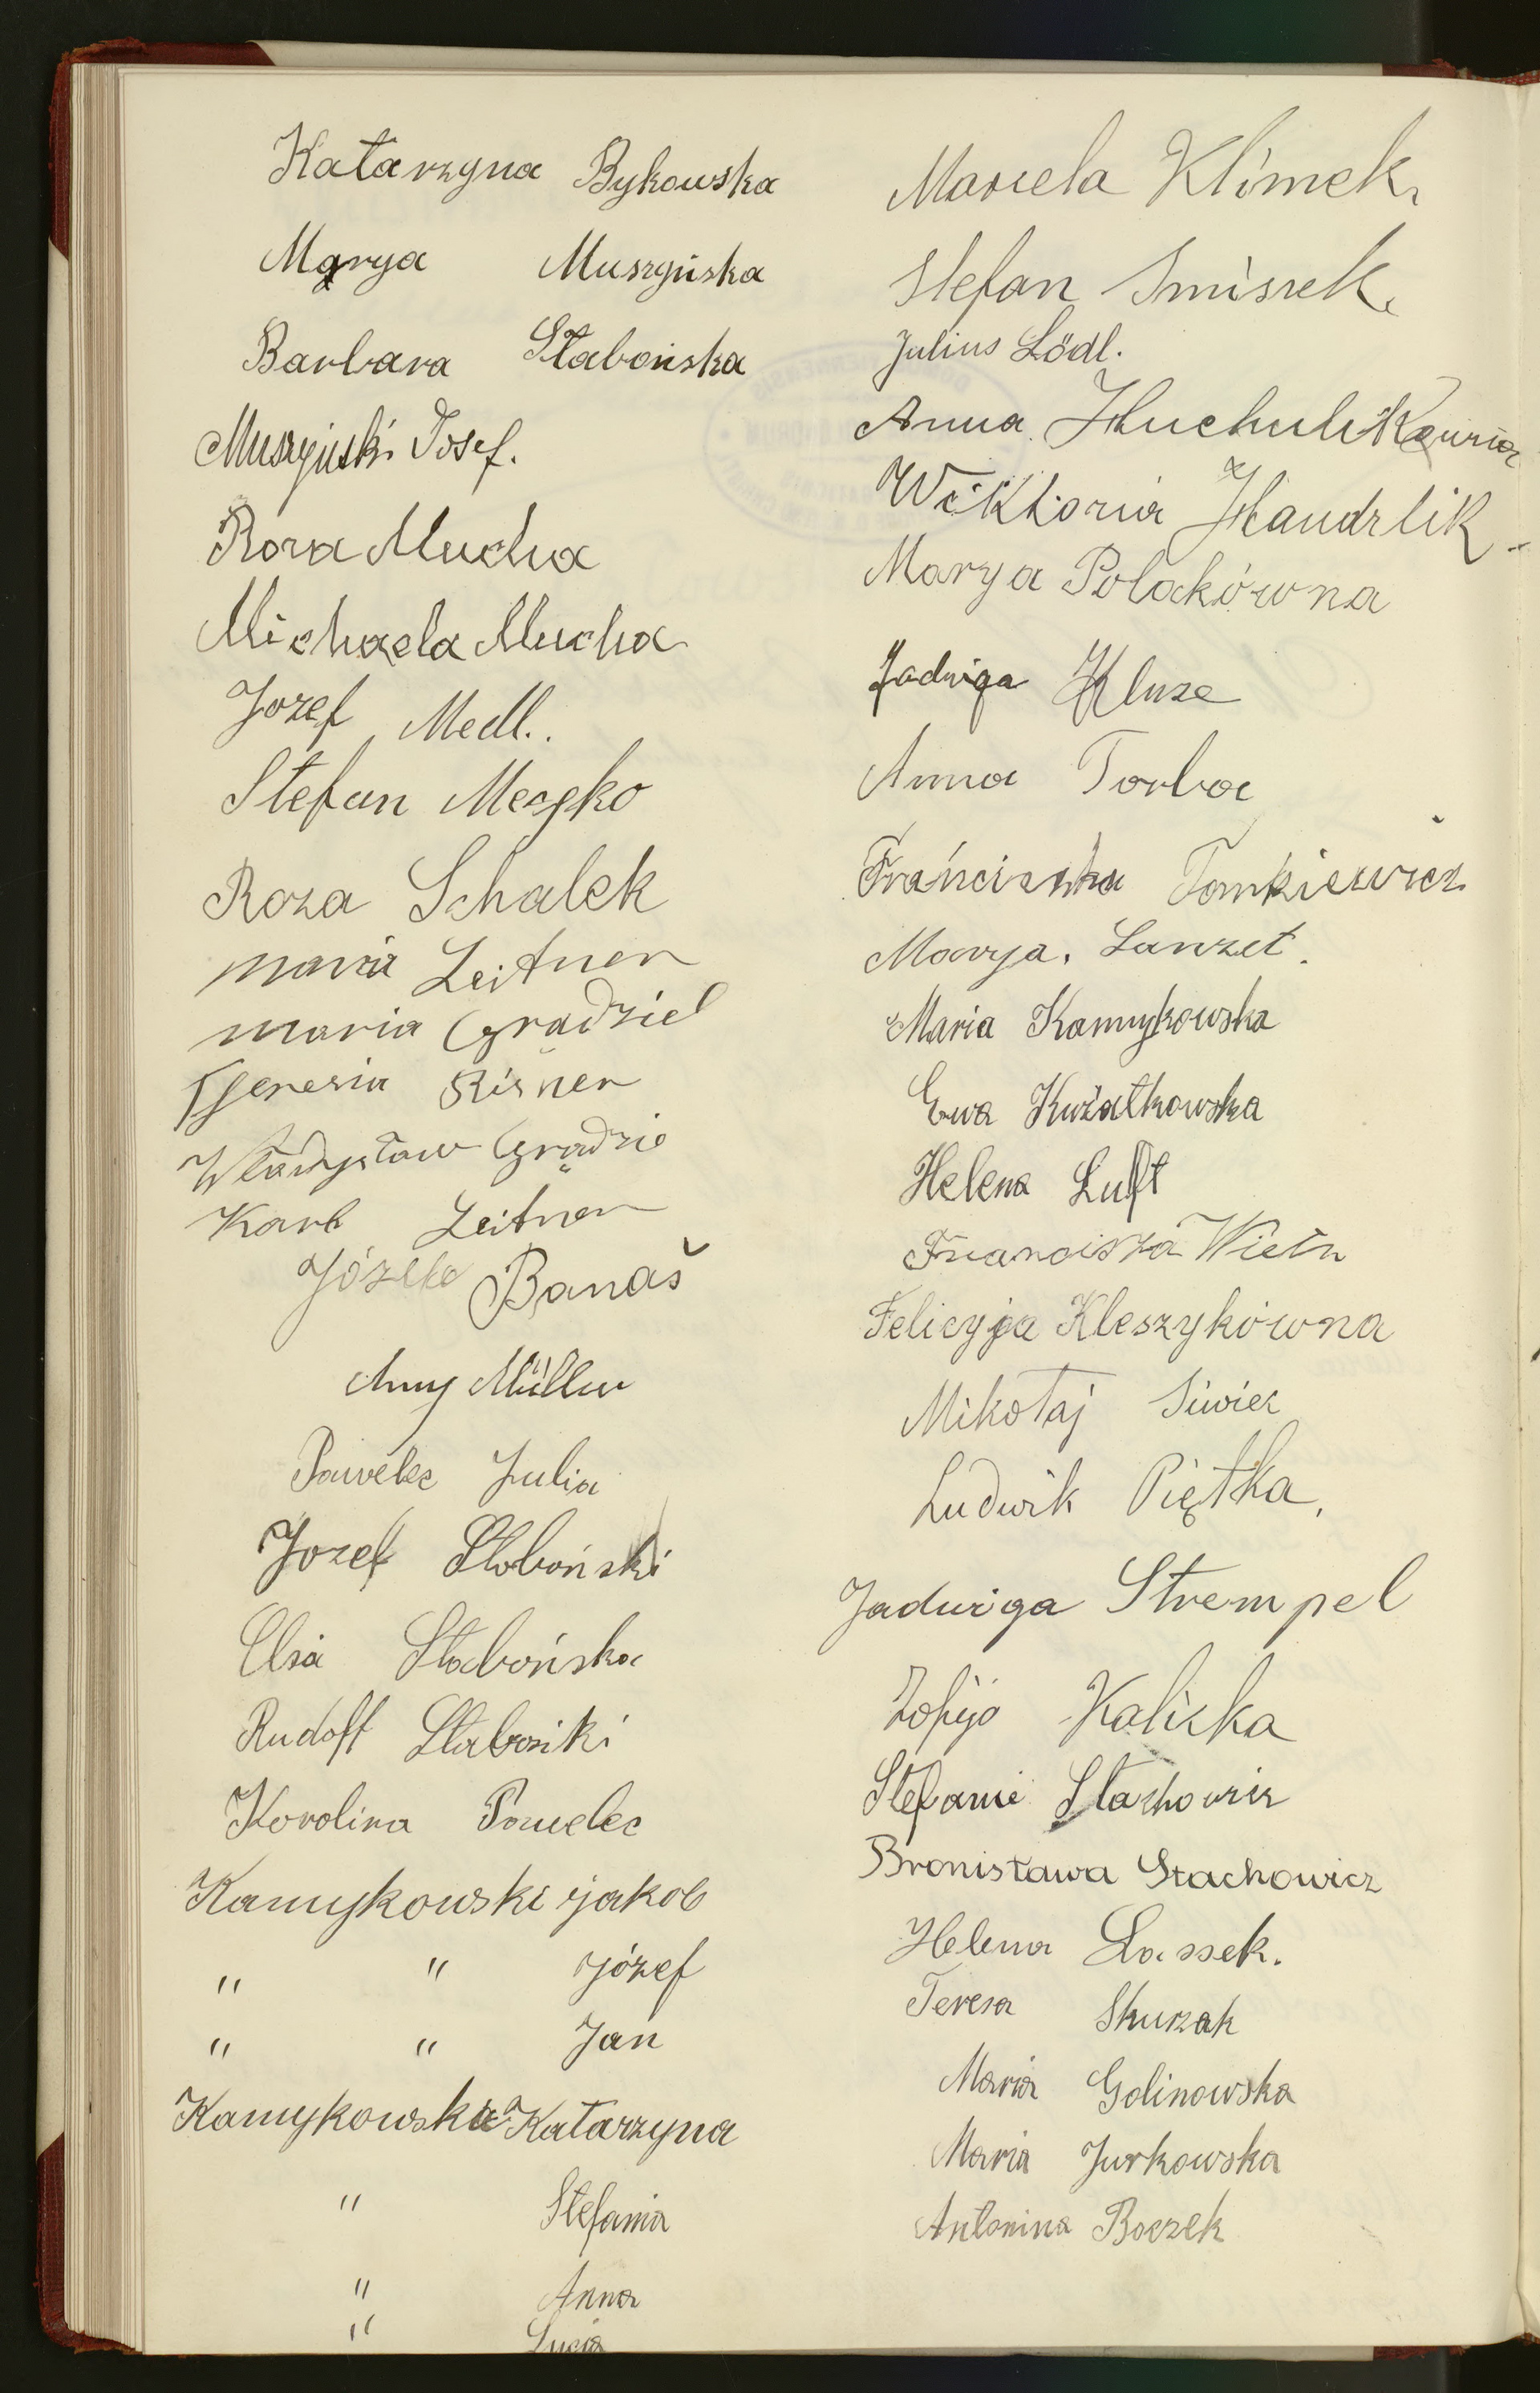 Katarzyna Bykowska
Marya Muszyńska
Barbara Słabońska
Muszyński Josef.
Roza Mucha
Michaela Mucha
Jozef Medl..
Stefan Meszko
Roza Schalek
maria Leitner
maria Gradziel
Theresia Risner
Władysław Grądzie
Karl Leitner
Józefe Banaš
Amy Müller
Pawelec Julia
Jozef Słaboński
Elsa Słabońska
Rudolf Słabonski
Karolina Pawelec
Kamykowski jakob
" " józef
" " Jan
Kamykowska Katarzyna
" Stefania
" Anna
" Lucia
Marcela Klimek
Stefan Smiszek
Julius Lödl.
Anna Huchulikowna
Wiktoria Handzlik
Marya Polakówna
Jadwiga Kluze
Anna Torba
Franciszka Tomkiewicz
Marya. Lanzet.
Maria Kamykowska
Ewa Kwiatkowska
Helena Luft
Franciszka
Felicyja Kleszykówna
Mikołaj Siwiec
Ludwik Piętka,
Jadwiga Strempel
Zofija Kaliska
Stefanie Stachowicz
Bronisława Stachowicz
Helena Lassek.
Teresa Skurzak
Maria Golinowska
Maria Jurkowska
Antonina Boczek